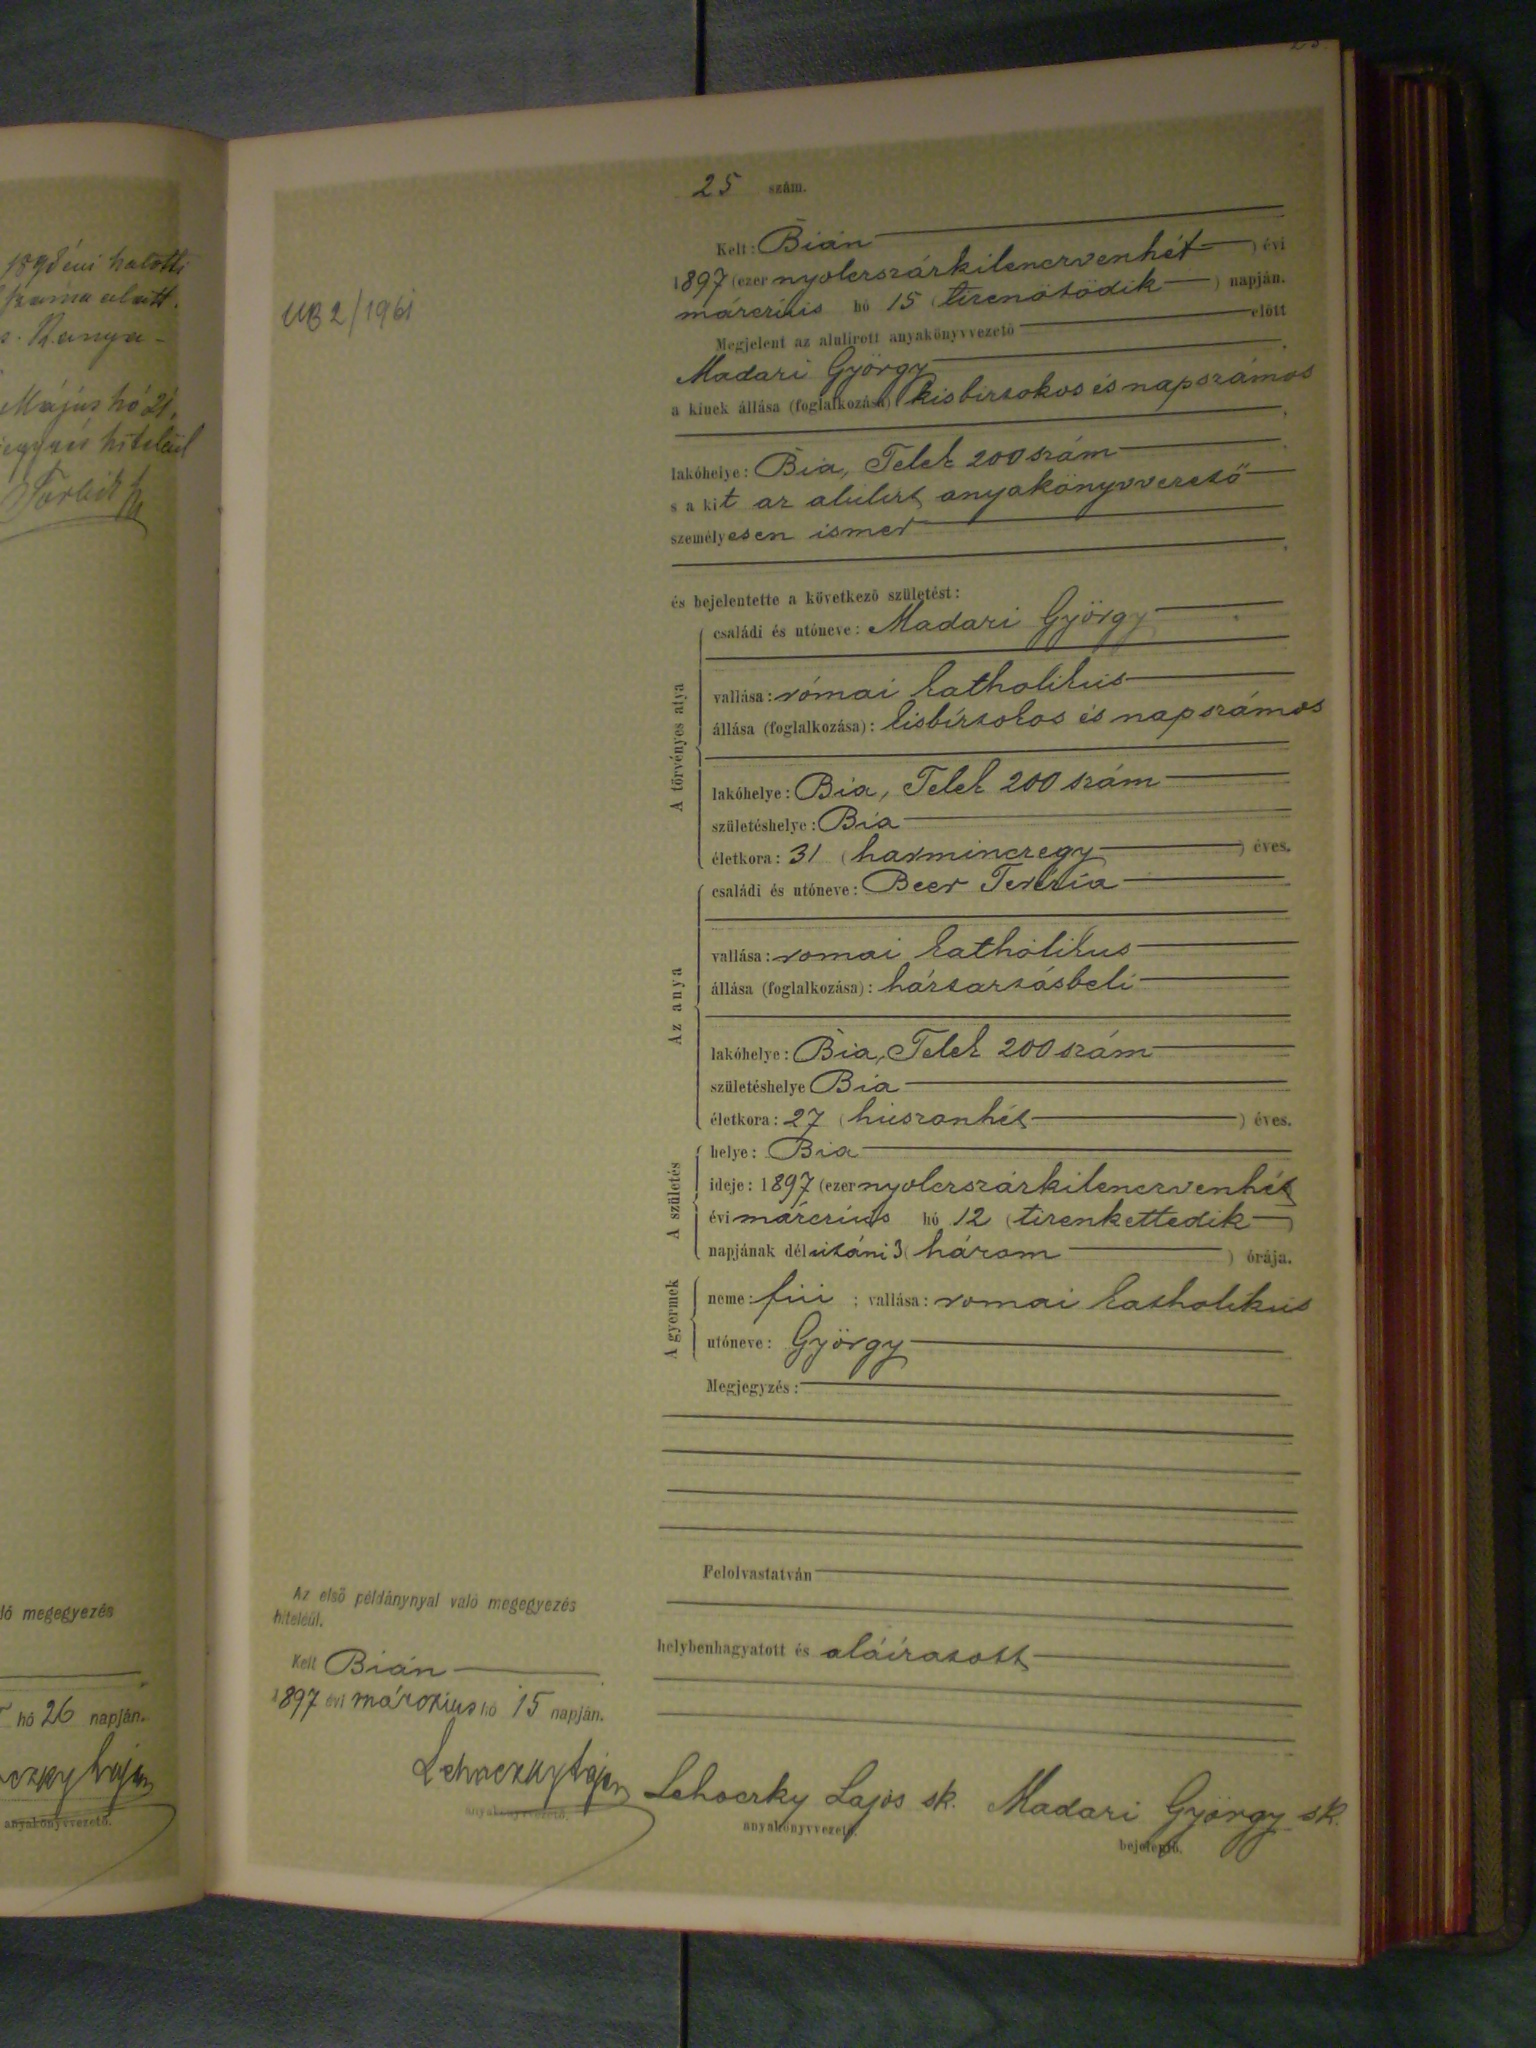 1898 évi halotti
száma alatt.
Május hó 21.
hiteléül
ló megegyezés
hó 26 napján.
anyakönyvvezető.
25 szám.
Kelt: Bián
1897 (ezer nyolcszázkilencvenhét) évi
március hó 15 (tizenötödik) napján.
Megjelent az alulirott anyakönyvvezető előtt
Madari György
a kinek állása (foglalkozása) kisbirtokos és napszámos
lakóhelye: Bia, Telek 200 szám
s a kit az alulirt anyakönyvvezető
személyesen ismer
és bejelentette a következő születést:
A törvényes atya
családi és utóneve: Madari György
vallása: római katholikus
állása (foglalkozása): kisbirtokos és napszámos
lakóhelye: Bia, Telek 200 szám
születéshelye: Bia
életkora: 31 (harmincegy) éves.
Az anya
családi és utóneve: Beer Terézia
vallása: romai katholikus
állása (foglalkozása): háztartásbeli
lakóhelye: Bia, Telek 200 szám
születéshelye Bia
életkora: 27 (huszonhét) éves.
A születés
helye: Bia
ideje: 1897 (ezer nyolcszázkilencvenhét
évi március hó 12 (tizenkettedik)
napjának délutáni 3 (három) órája.
A gyermek
neme: fiú; vallása: romai katholikus
utóneve: György
Megjegyzés:
Felolvastatván
helybenhagyatott és aláíratott
Lehoczky Lajos sk. Madari György sk.
anyakönyvvezető. bejelentő.
2/1961
Az első példánynyal való megegyezés
hiteléül.
Kelt Bián
1897 évi március hó 15 napján.
Lehoczky Lajos
anyakönyvvezető.